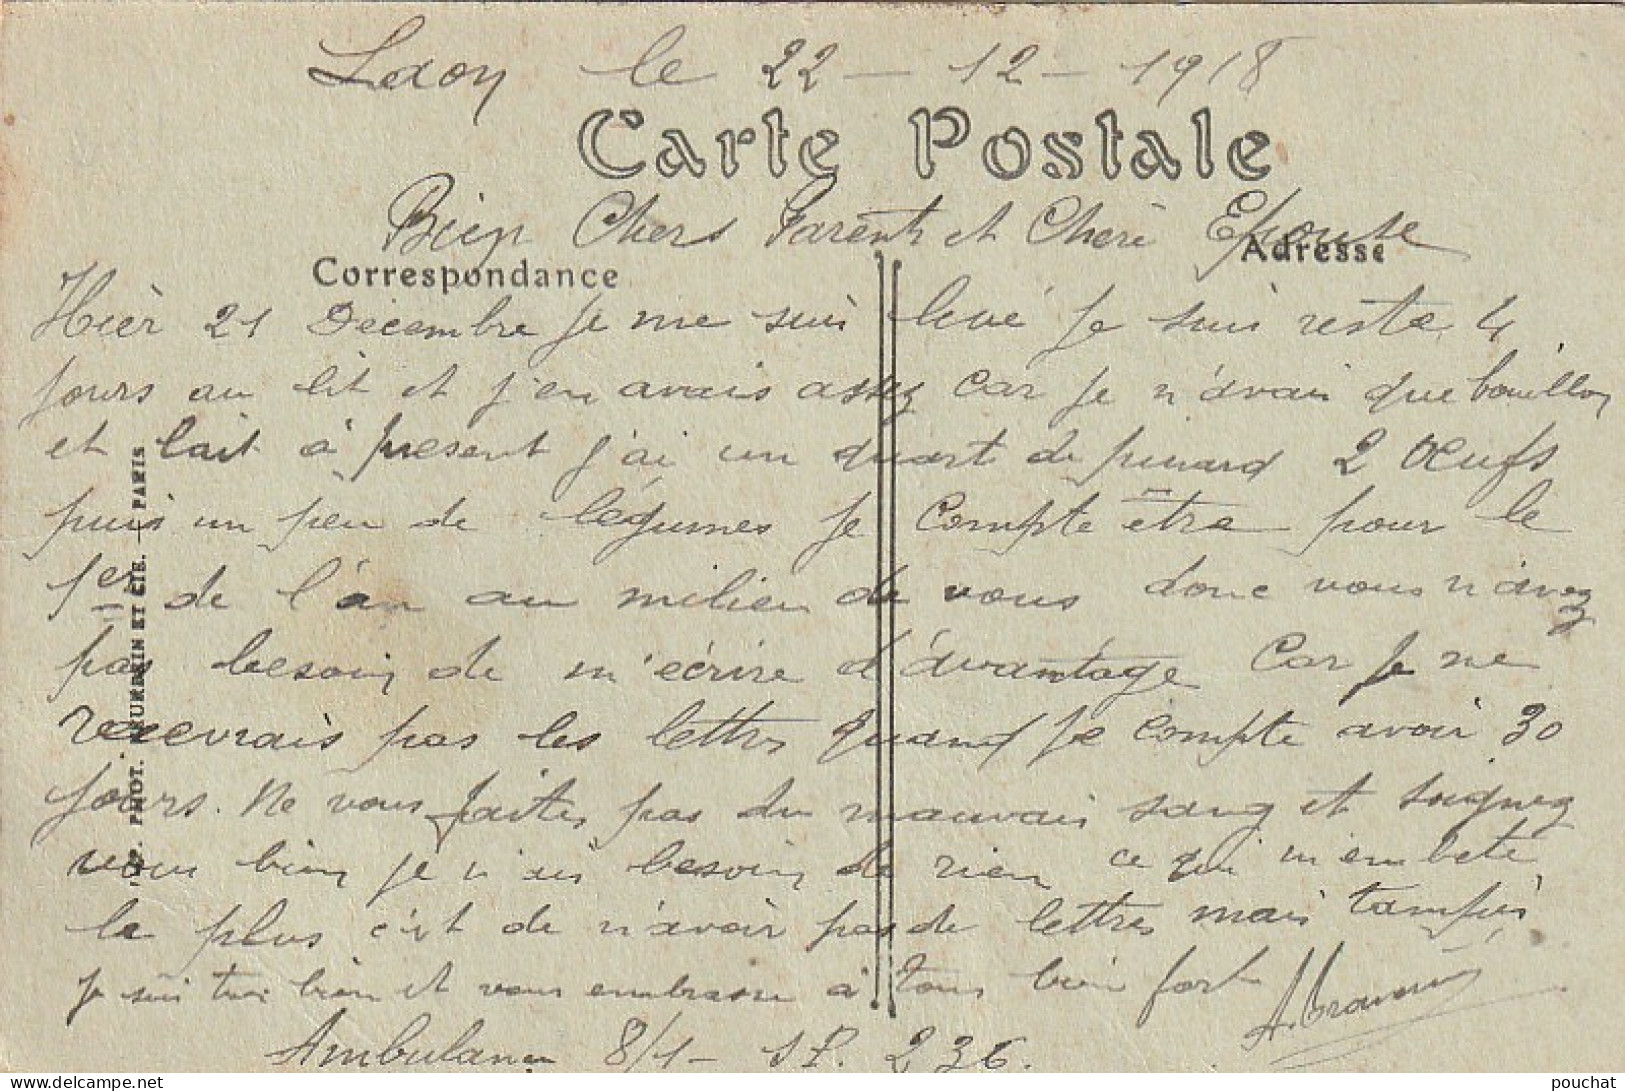 Laon le 22 - 12 - 1918
Carte Postale
Bien Chers Parents et Cheré Epouse
Correspondance
Adresse
Hièr 21 Décembre je me suis levé je suis reste 4
jours au lit et j'en avais assez car je n'avais que bouillon
et lait à présent j'ai un quart de pinard 2 œufs
puis un peu de légumes je compte être pour le
1er de l'an au milieu de vous donc vous n'avez
pas besoin de m'écrire d'avantage car je ne
recevrais pas les lettres quand je compte avoir 30
jours. Ne vous faites pas du mauvais sang et soignez
vous bien je n'ai besoin de rien ce qui m'embete
le plus c'est de n'avoir pas de lettres mais tampis
je suis très bien et vous embrasse à tous bien fort
Ambulance 8/1 - S P. 236.
PHOT. NEURDEIN ET CIE. - PARIS
pouchat